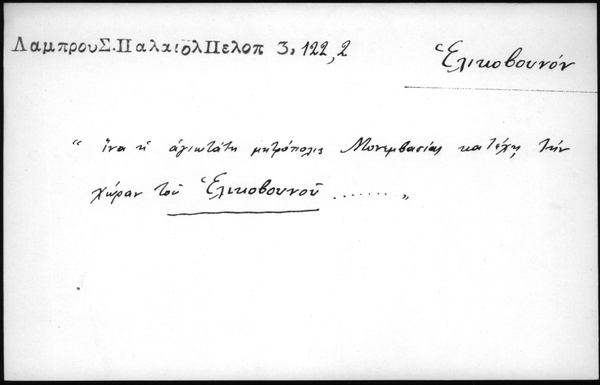 ΛαμπρουΣ.ΠαλαιολΠελοπ 3,122,2
Ἑλικοβουνόν
" ἵνα ἡ ἁγιωτάτη μητρόπολις Μονεμβασίας κατέχῃ τὴν
χώραν τοῦ Ἑλικοβουνοῦ ....... "